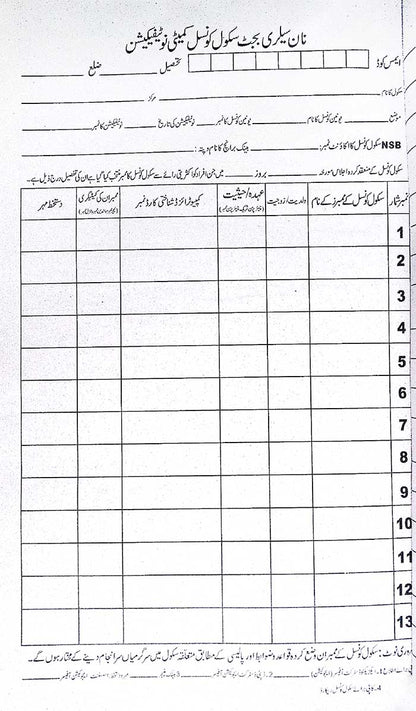 نان سیلری بجٹ سکول کونسل کمیٹی نوٹیفیکیشن
ایمس کوڈ تحصیل ضلع
سکول کا نام مرکز
موضع یونین کونسل کا نام یونین کونسل کا نمبر نوٹیفیکیشن کی تاریخ نوٹیفیکیشن کا نمبر
NSB سکول کونسل کا اکاؤنٹ نمبر: بینک برانچ کا نام و پتہ:
سکول کونسل کے منعقد کردہ اجلاس مورخہ بروز میں جن افراد کو اکثریتی رائے سے سکول کونسل کا ممبر منتخب کیا گیا ہے ان کی تفصیل درج ذیل ہے۔
نمبر شمار سکول کونسل کے ممبرز کے نام ولدیت/زوجیت عہدہ/حیثیت کمپیوٹرائزڈ شناختی کارڈ نمبر ممبران کی کیٹیگری دستخط مہر
1
2
3
4
5
6
7
8
9
10
11
12
13
ضروری نوٹ: سکول کونسل کے ممبران وضع کردہ قواعد و ضوابط اور پالیسی کے مطابق متعلقہ سکول میں سرگرمیاں سرانجام دینے کے مختار ہوں گے۔